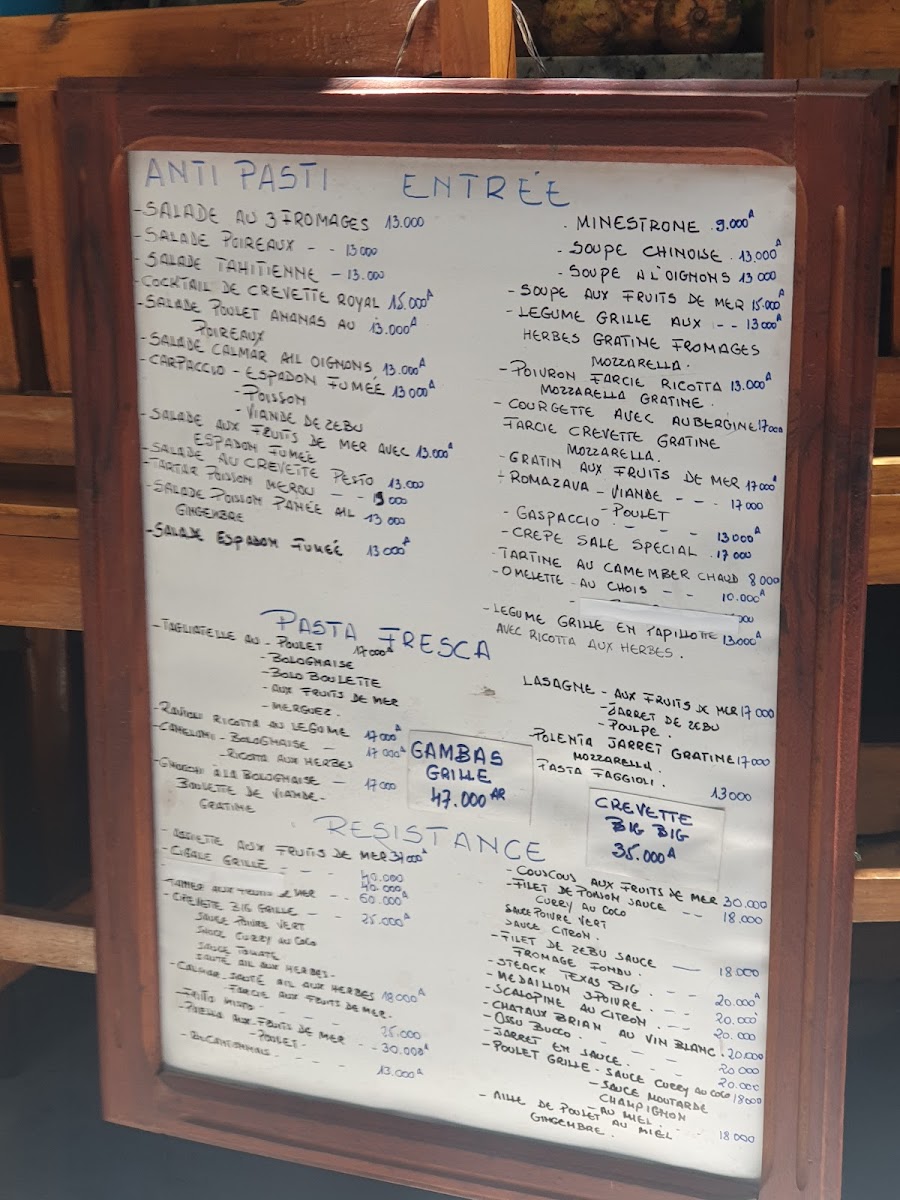 ANTI PASTI
-SALADE AU 3 FROMAGES 13.000
-SALADE POIREAUX - - 13000
-SALADE TAHITIENNE - 13.000
-COCKTAIL DE CREVETTE ROYAL 15.000A
-SALADE POULET ANANAS AU 13.000A
POIREAUX
-SALADE CALMAR AIL OIGNONS 13.000A
-CARPACCIO - ESPADON FUMÉE 13000A
-POISSON
-VIANDE DE ZEBU
-SALADE AUX FRUITS DE MER AVEC 13.000A
ESPADON FUMÉE
-SALADE AU CREVETTE PESTO 13.000
-TARTAR POISSON MEROU - - 15000
-SALADE POISSON PANÉE AIL 13000
GINGEMBRE
-SALADE ESPADON FUMÉE 13000A
ENTRÉE
. MINESTRONE 9.000A
- SOUPE CHINOISE . 13.000A
- SOUPE A L'OIGNONS 13000
- SOUPE AUX FRUITS DE MER 15.000A
- LEGUME GRILLE AUX - - 13000A
HERBES GRATINE FROMAGES
MOZZARELLA.
- POIVRON FARCIE RICOTTA 13.000A
MOZZARELLA GRATINE.
- COURGETTE AVEC AUBERGINE 17000
FARCIE CREVETTE GRATINE
MOZZARELLA.
- GRATIN AUX FRUITS DE MER 17000A
- ROMAZAVA - VIANDE - - - 17000
- POULET
- GASPACCIO . - - - 13000A
- CREPE SALE SPECIAL . 17000
-TARTINE AU CAMEMBER CHAUD 8000
-OMELETTE - AU CHOIS - - 10.000A
-LEGUME GRILLE EN PAPILLOTTE 13000A
AVEC RICOTTA AUX HERBES.
PASTA FRESCA
-TAGLIATELLE AU - POULET 17000A
-BOLOGNAISE
-BOLO BOULETTE
-AUX FRUITS DE MER
-MERGUEZ.
-RAVIOLI RICOTTA AU LEGUME 17000A
-CANELONI - BOLOGNAISE - 17000A
-RICOTTA AUX HERBES
-GNOCCHI À LA BOLOGNAISE - 17000
BOULETTE DE VIANDE-
GRATINE
LASAGNE - AUX FRUITS DE MER 17000
-JARRET DE ZEBU
-POULPE.
-POLENTA JARRET GRATINE 17000
MOZZARELLA.
PASTA FAGGIOLI. 13000
GAMBAS
GRILLE
47.000AR
CREVETTE
BIG BIG
35.000A
RESISTANCE
-ASSIETTE AUX FRUITS DE MER
-CIGALE GRILLE - - 40.000
40.000
60.000A
-CREVETTE BIG GRILLE - - 25.000A
SAUCE POIVRE VERT
SAUCE CURRY AU COCO
SAUCE TOMATE
SAUTÉ AIL AUX HERBES-
-CALMAR SAUTÉ AIL AUX HERBES 18000A
-FARCIE AUX FRUITS DE MER.
-FRITTO MISTO - - - 25.000
-PAELLA AUX FRUITS DE MER - - 30.000A
-POULET.
13.000A
- COUSCOUS AUX FRUITS DE MER 30.000
- FILET DE POISSON SAUCE - - 18.000
CURRY AU COCO
SAUCE POIVRE VERT
SAUCE CITRON.
- FILET DE ZEBU SAUCE — 18000
FROMAGE FONDU.
- STEACK TEXAS BIG . - - 20.000A
- MEDAILLON 3 POIVRE . - - 20.000
- SCALOPINE AU CITRON . - - 20.000
- CHATAUX BRIAN AU VIN BLANC . 20.000
- OSSO BUCCO . - - 20000
- JARRET EN SAUCE . - - 20.000
- POULET GRILLE - SAUCE CURRY AU COCO 18000
- SAUCE MOUTARDE
CHAMPIGNON
- AU MIEL.
- AILE DE POULET AU MIEL 18000
GINGEMBRE.